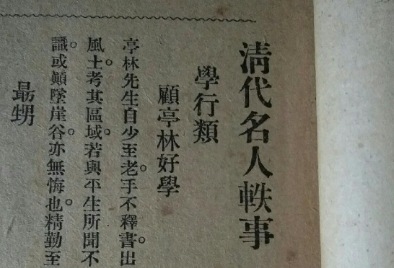 清代名人軼事
學行類
顧亭林好學
亭林先生自少至老。手不釋書。出
風土。考其區域。若與平生所聞不
識。或顚墜崖谷。亦無悔也。精勤至